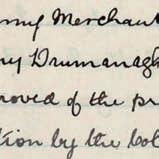 Merchant
ry Drumanagh
roved of the pr
tion by the bol